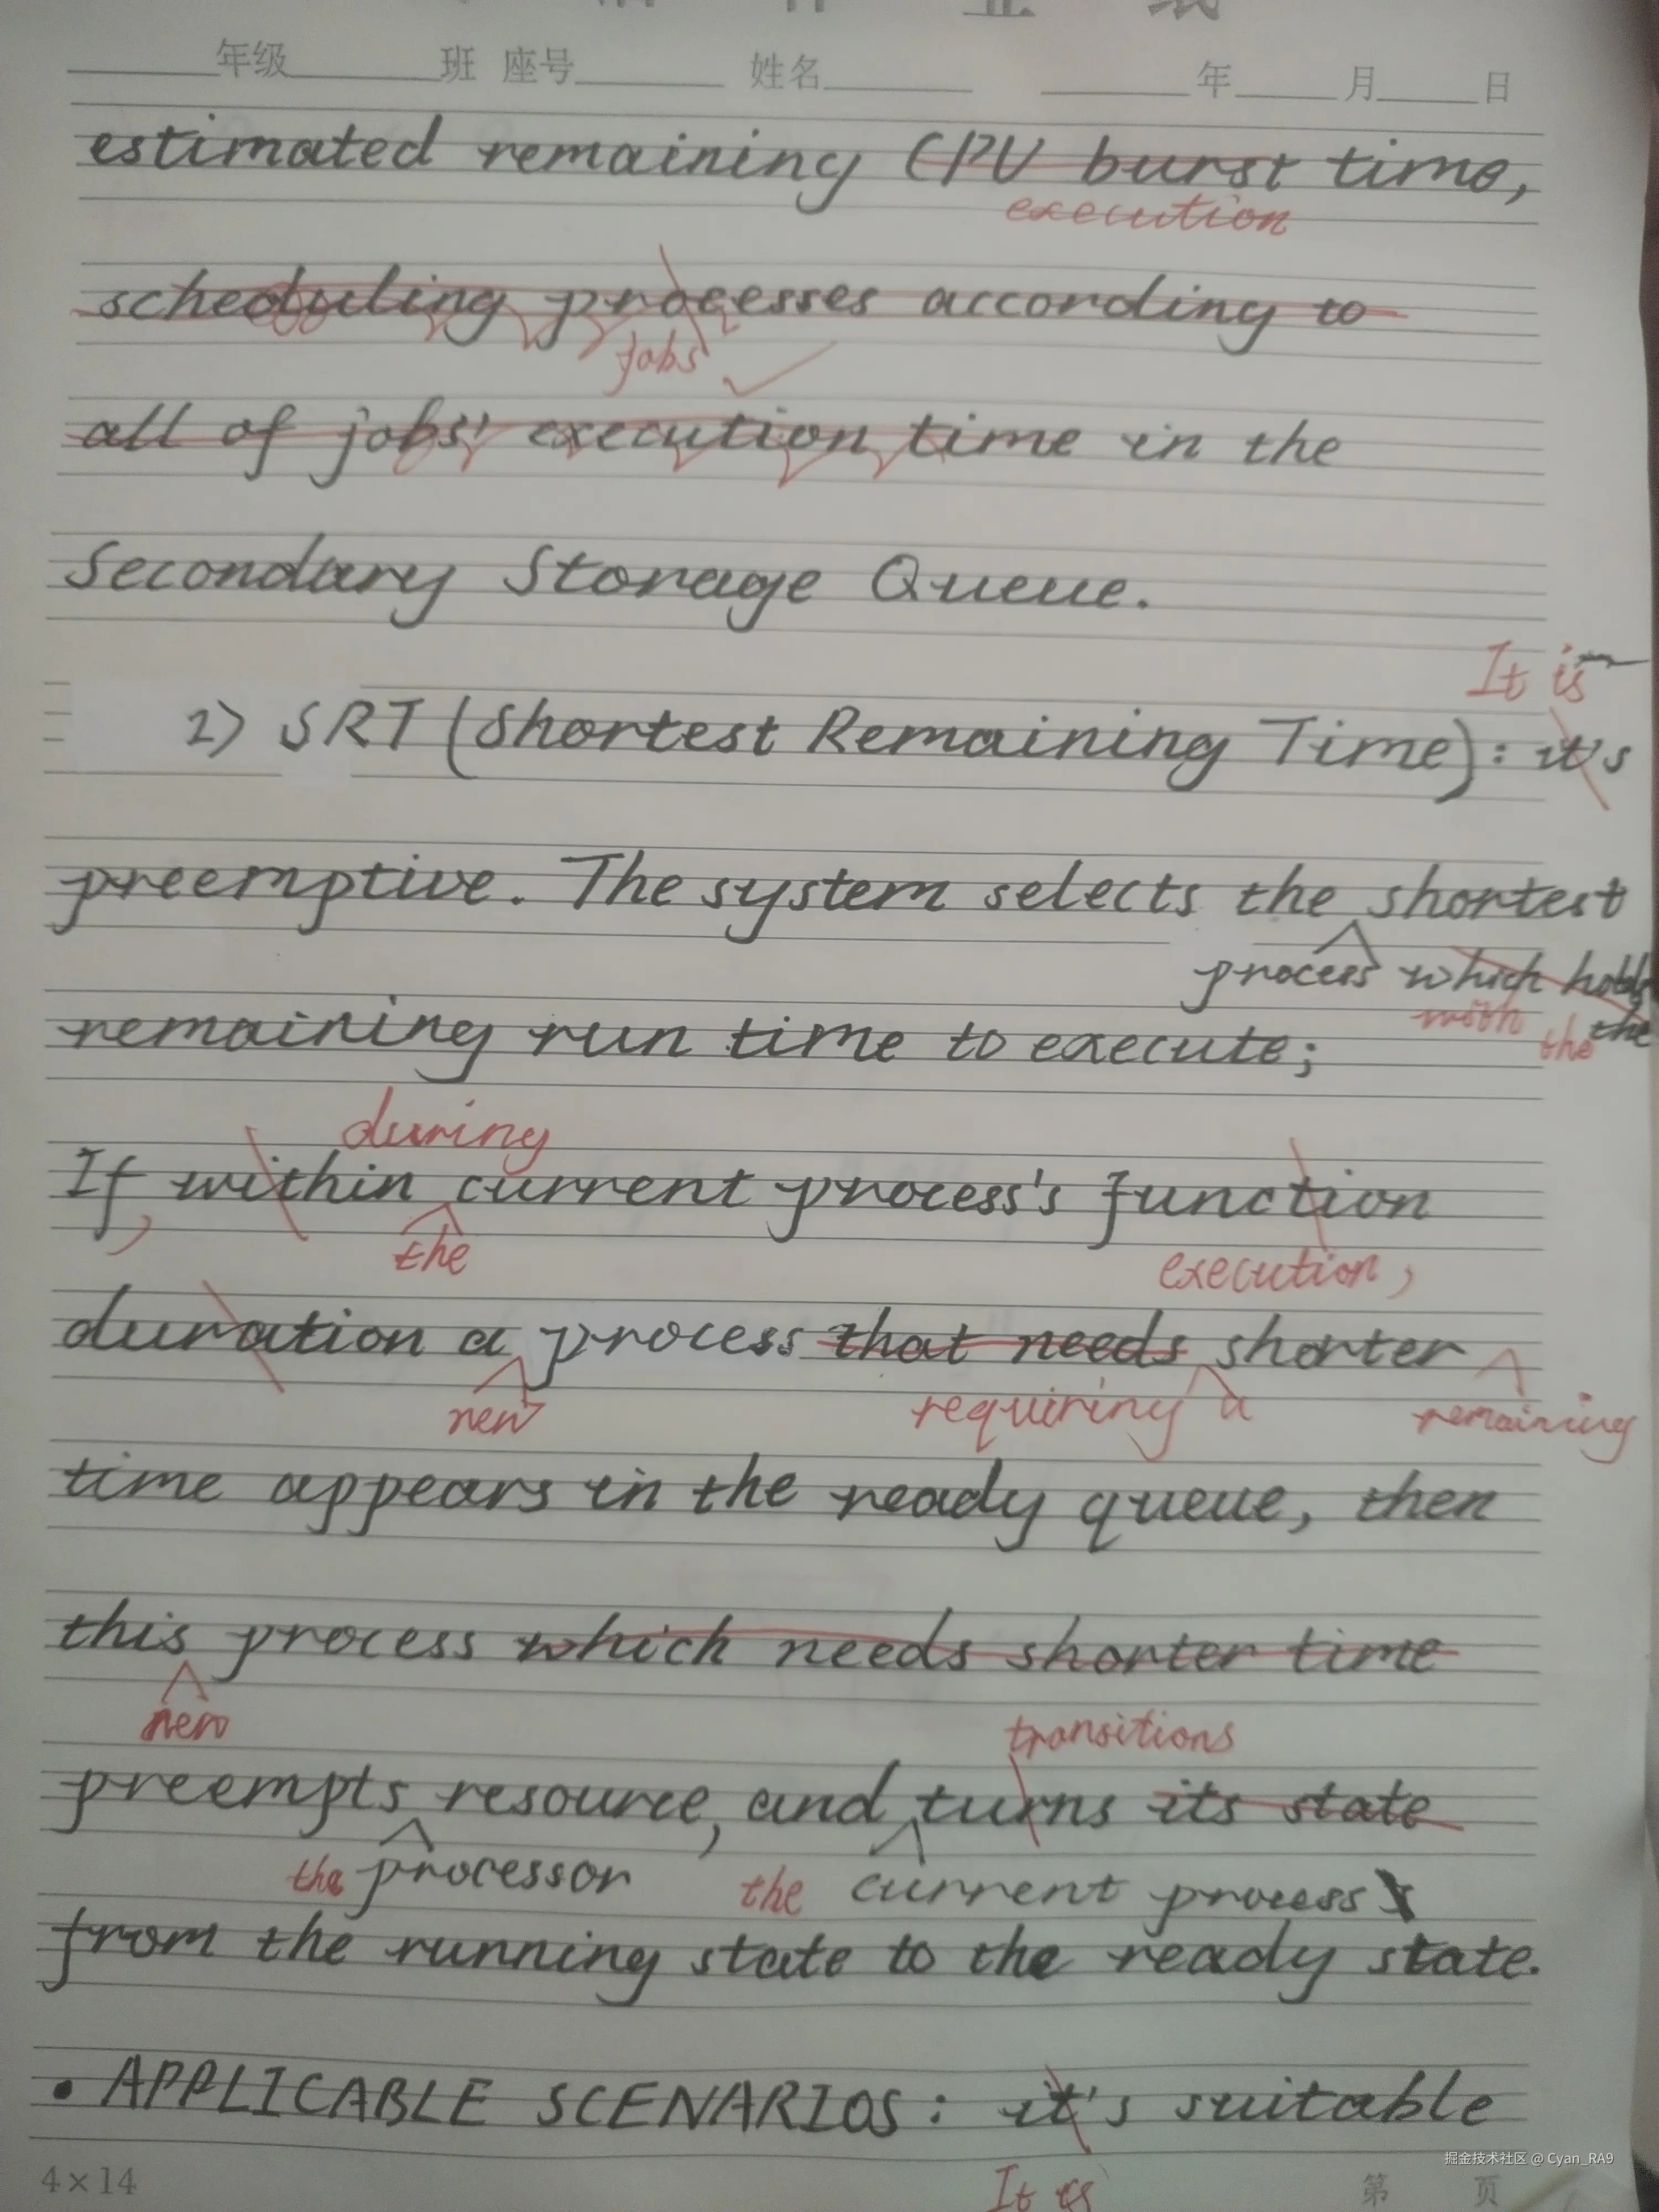 年级 班 座号 姓名 年 月 日
estimated remaining CPU burst time,
execution
scheduling processes according to
jobs
all of jobs' execution time in the
Secondary Storage Queue.
It is
2) SRT (Shortest Remaining Time): it's
preemptive. The system selects the shortest
process which holds
with the the
remaining run time to execute;
during
If, within current process's function
the execution,
duration a process that needs shorter
new requiring a remaining
time appears in the ready queue, then
this process which needs shorter time
new transitions
preempts resource, and turns its state
the processor the current process
from the running state to the ready state.
• APPLICABLE SCENARIOS: it's suitable
It is
4×14 第 页
掘金技术社区 @ Cyan_RA9